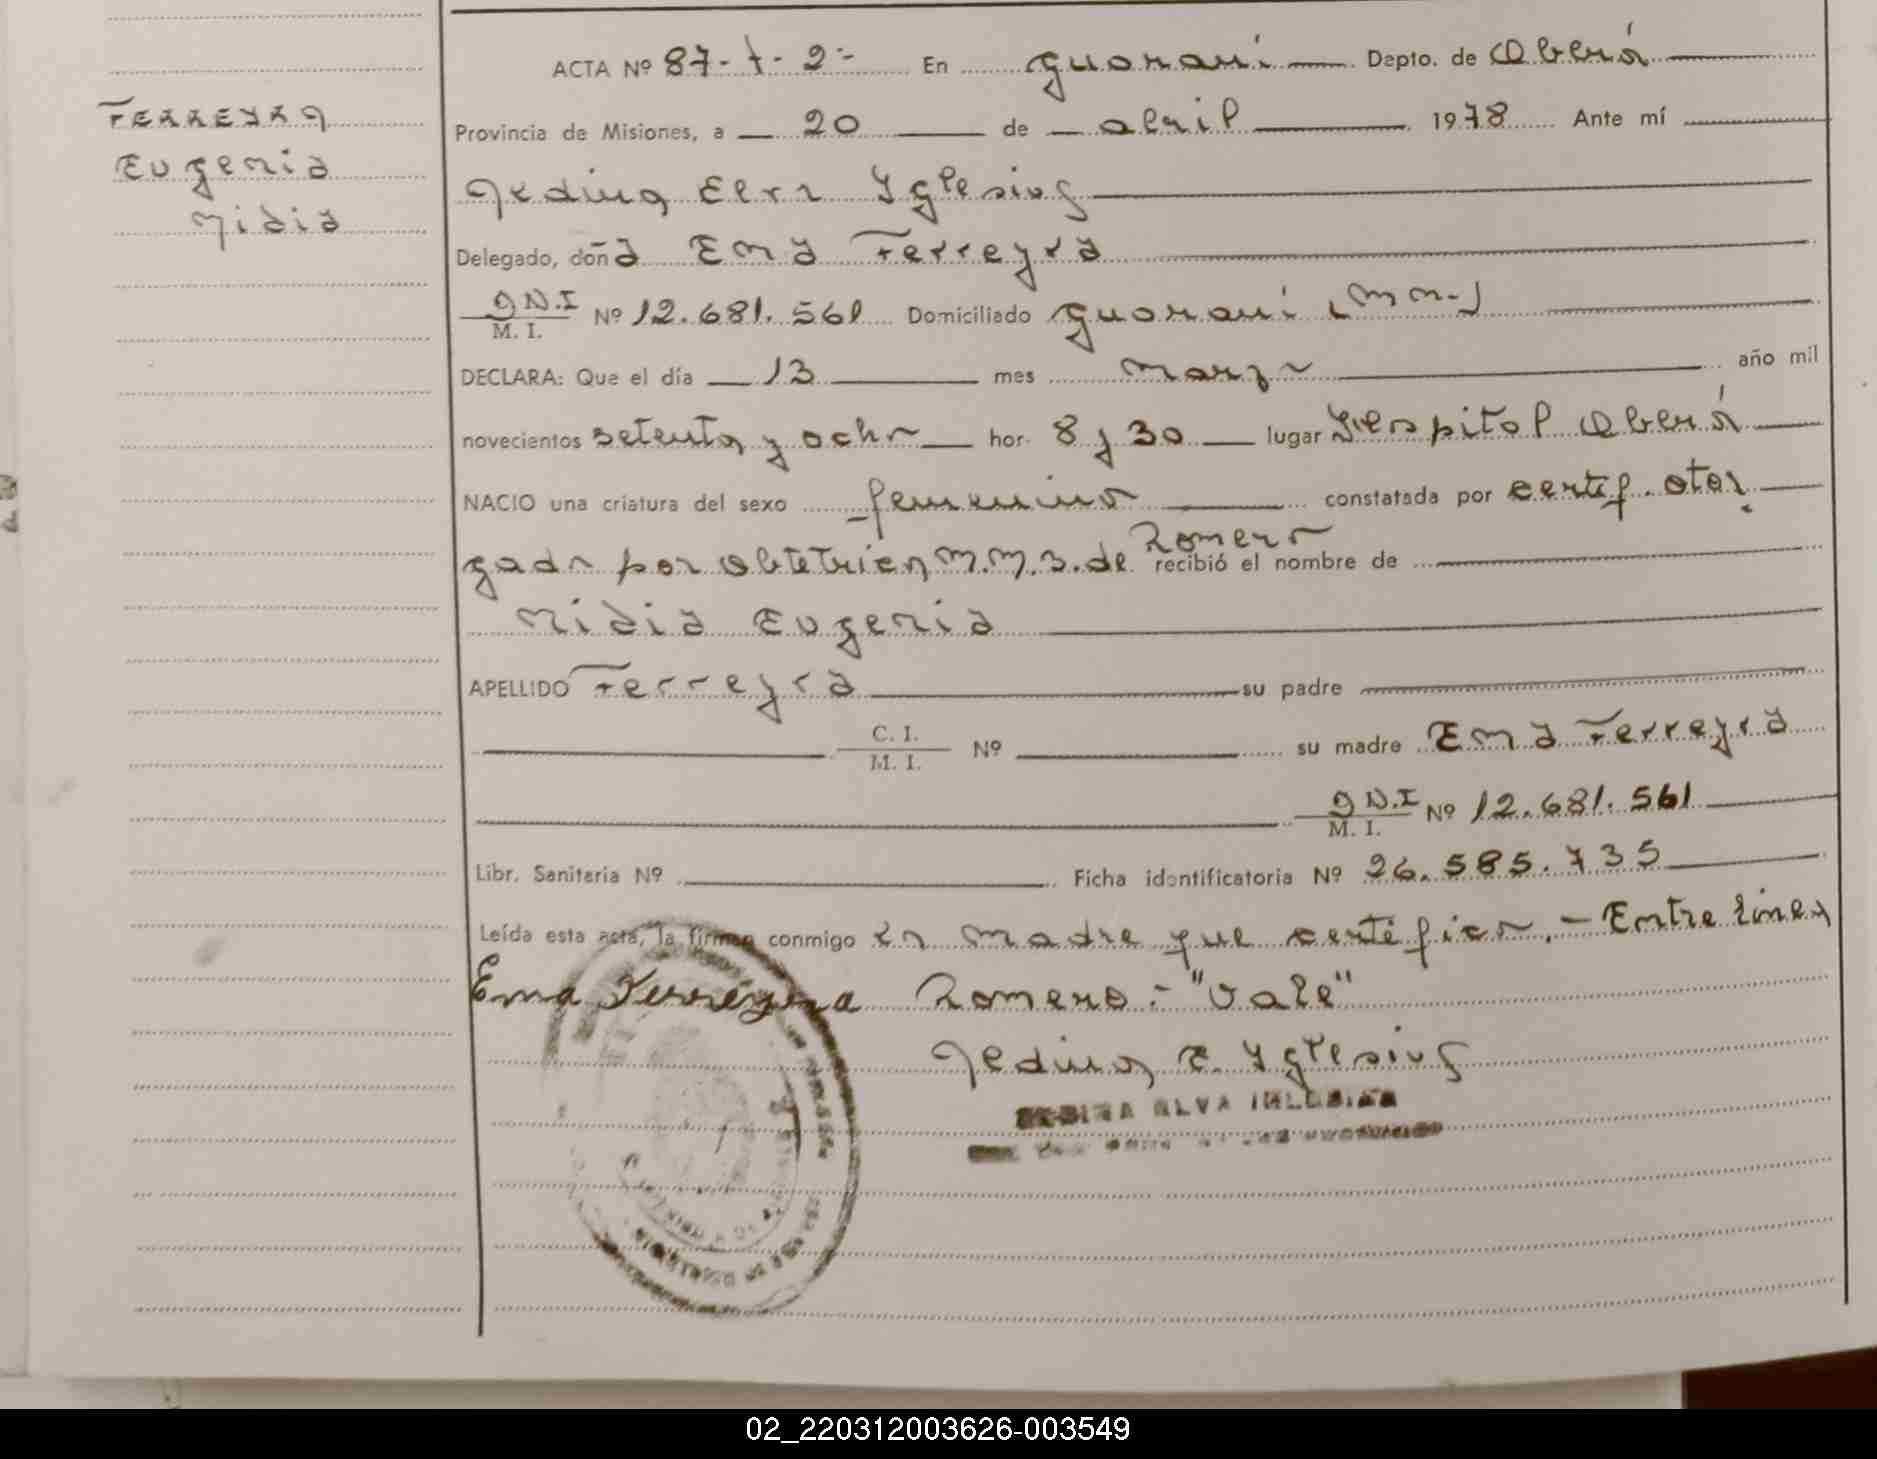 FERREYRA
Eugenia
Nidia
ACTA Nº 87-t-2- En Guaraní Depto. de Oberá
Provincia de Misiones, a 20 de abril 1978 Ante mí
Yedina Elva Yglesias
Delegado, doña Ema Ferreyra
D.N.I
M. I. Nº 12.681.561 Domiciliado Guaraní (Mnes.)
DECLARA: Que el día 13 mes marzo año mil
novecientos setenta y ocho hor. 8 y 30 lugar Hospital Oberá
NACIO una criatura del sexo femenino constatada por certif. otor
gado por Obtetrica M.M.B. de Romero recibió el nombre de
Nidia Eugenia
APELLIDO Ferreyra su padre
C. I.
M. I. Nº su madre Ema Ferreyra
D.N.I
M. I. Nº 12.681.561
Libr. Sanitaria Nº Ficha identificatoria Nº 26.585.735
Leída esta acta, la firman conmigo la madre que certifico.- Entre linea
Ema Ferreyra Romero:- "Vale"
Yedina E. Yglesias
02_220312003626-003549